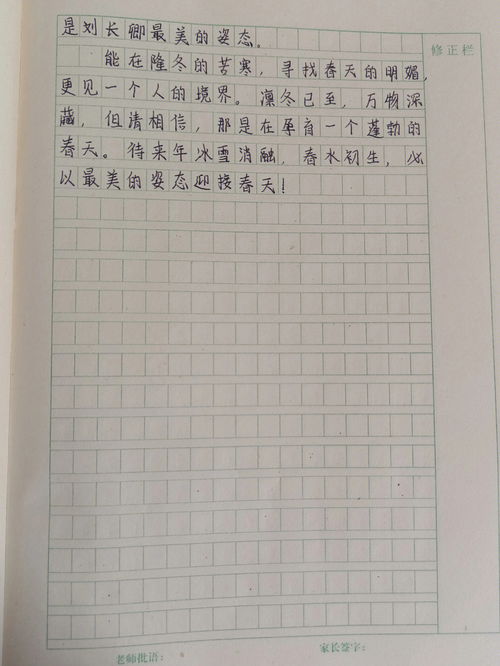 是刘长卿最美的姿态。
修正栏
能在隆冬的苦寒，寻找春天的明媚，
更见一个人的境界。凛冬已至，万物深
藏，但请相信，那是在孕育一个蓬勃的
春天。待来年冰雪消融，春水初生，必
以最美的姿态迎接春天！
老师批语：
家长签字：